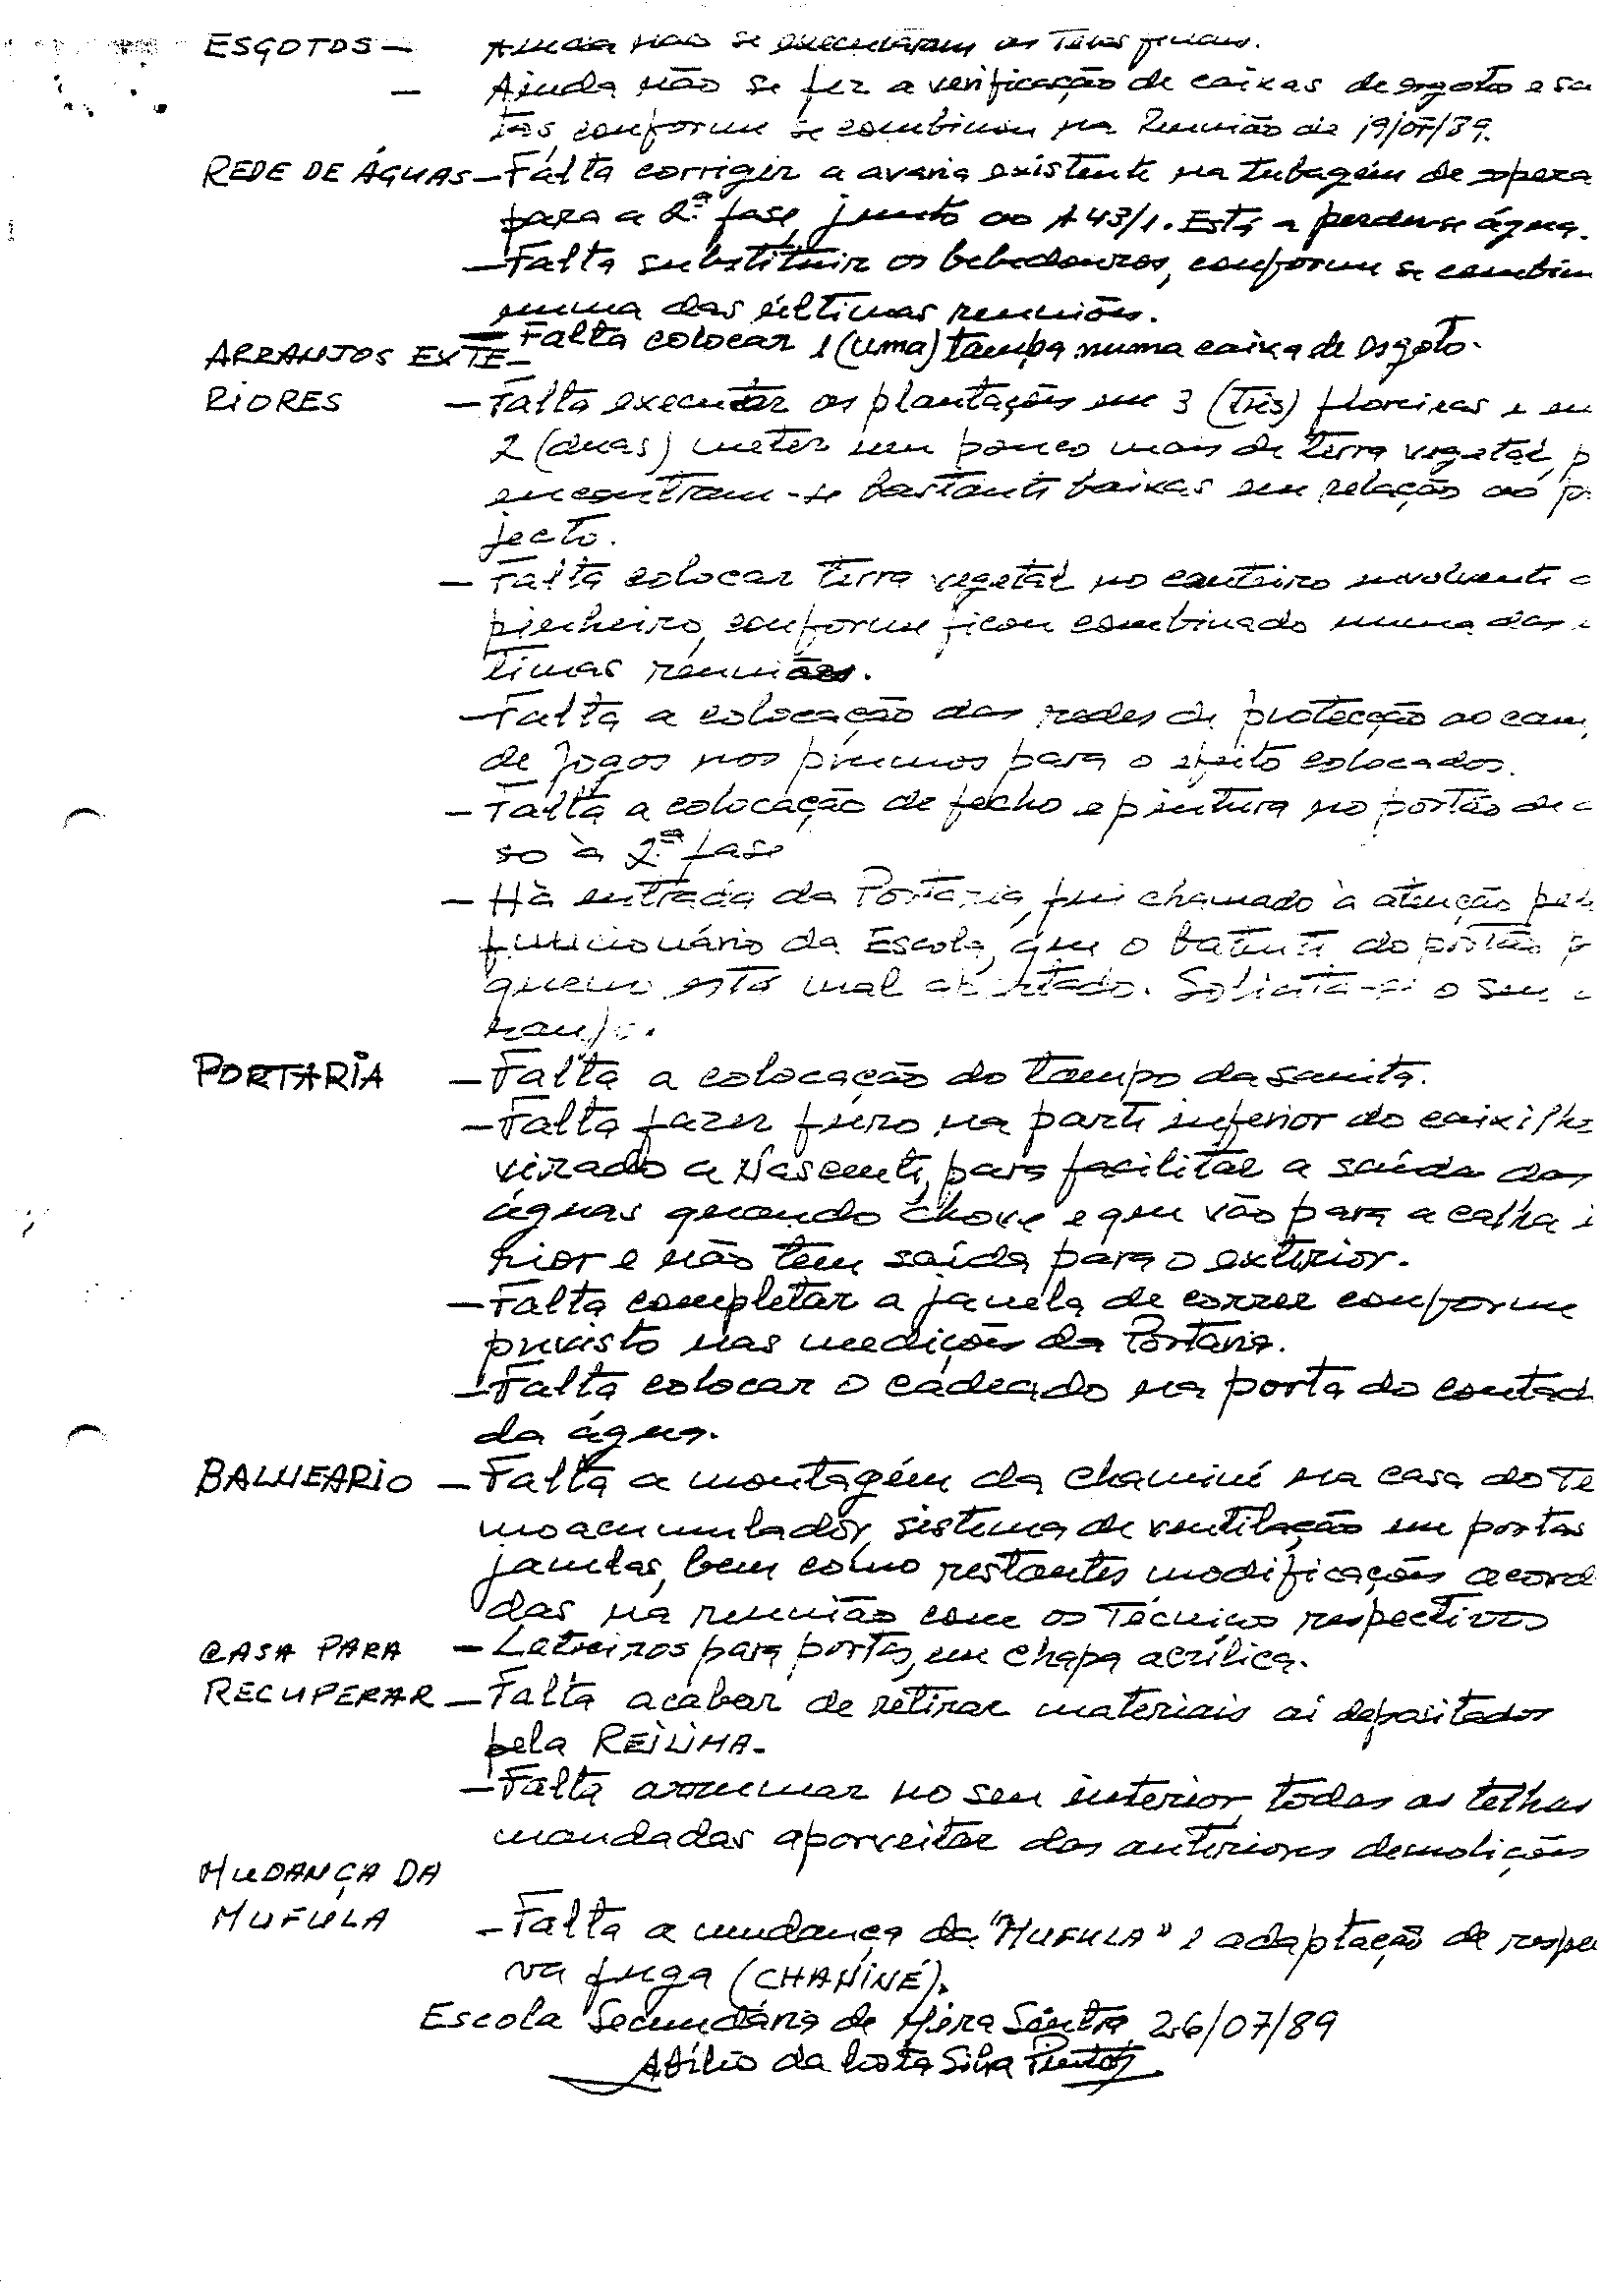 ESGOTOS — Ainda não se executaram os Tetos finais.
— Ainda não se fez a verificação de caixas de esgoto e sa
tas, conforme se combinou na Reunião de 19/07/89.
REDE DE ÁGUAS — Falta corrigir a avaria existente na tubagem de
para a 2.ª fase, junto ao A 43/1. Está a perder-se água.
— Falta substituir os bebedouros, conforme se combin
numa das últimas reuniões.
— Falta colocar 1 (uma) tampa numa caixa de esgoto.
ARRANJOS EXTE—
RIORES — Falta executar as plantações em 3 (Três) floreiras e em
2 (duas) meter um pouco mais de terra vegetal, p
encontram-se bastante baixas em relação ao pr
jecto.
— Falta colocar terra vegetal no canteiro envolvente
pinheiro, conforme ficou combinado numa das
timas reuniões.
— Falta a colocação das redes de protecção ao cam
de Jogos nos prumos para o efeito colocados.
— Falta a colocação de fecho e pintura no portão de
so à 2.ª fase
— Há entrada da Portaria, fui chamado à atenção pel
funcionário da Escola, que o batente do portão p
queno está mal apertado. Solicita-se o seu
ranjo.
PORTARIA — Falta a colocação do tampo da sanita.
— Falta fazer furo na parte inferior do caixilho
virado a Nascente, para facilitar a saída das
águas quando chove e que vão para a calha i
rior e não tem saída para o exterior.
— Falta completar a janela de correr conforme
previsto nas medições da Portaria.
— Falta colocar o cadeado na porta do contad
da água.
BALNEARIO — Falta a montagem da chaminé na casa do Te
moacumulador, sistema de ventilação em portas
janelas, bem como restantes modificações acord
das na reunião com os Técnicos respectivos
CASA PARA — Letreiros para portas, em chapa acrílica.
RECUPERAR — Falta acabar de retirar materiais aí depositados
pela REILIMA.
— Falta arrumar no seu interior, todas as telhas
mandadas aporveitar das anteriores demolições
MUDANÇA DA
MUFULA — Falta a mudança da "MUFULA" e adaptação de respe
va fuga (CHAMINÉ).
Escola Secundária de Mira Sintra, 26/07/89
Abílio da Costa Silva